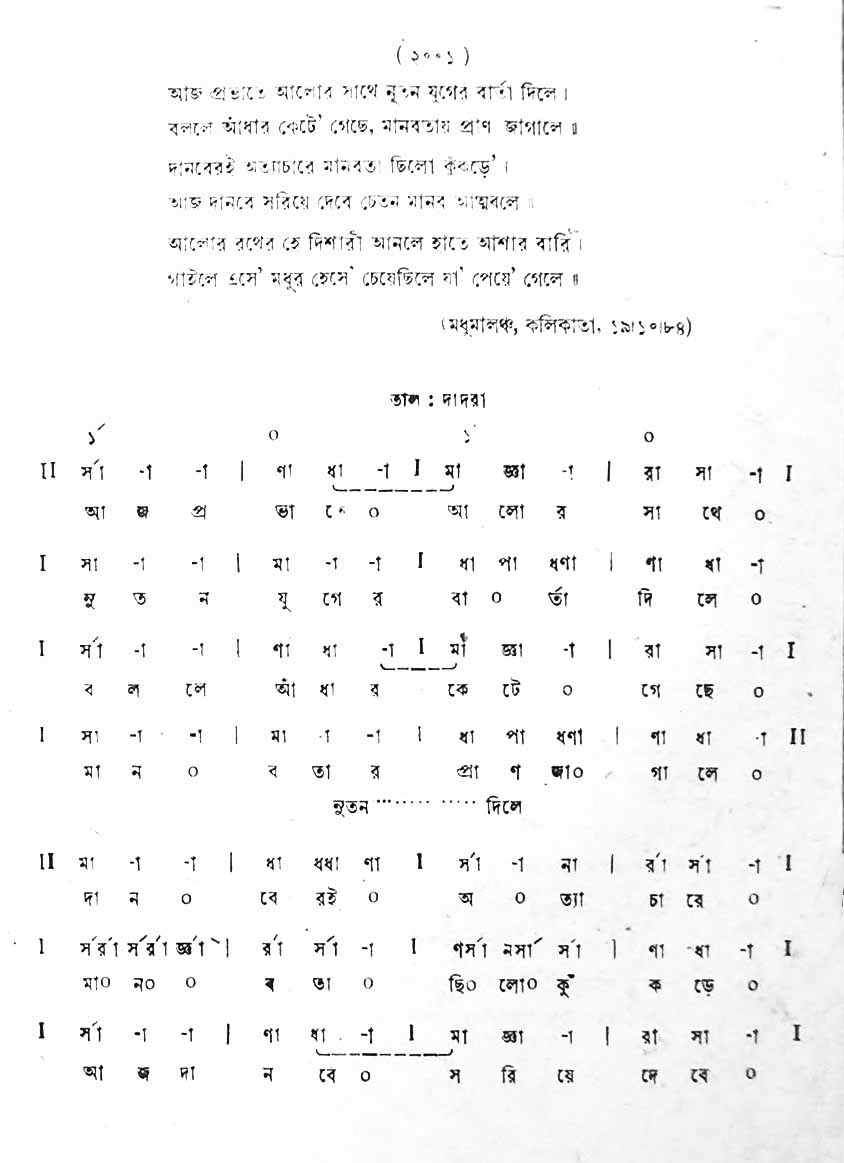 ( ২০০১ )
আজ প্রভাতে আলোর সাথে নূতন যুগের বার্তা দিলে ।
বললে আঁধার কেটে' গেছে, মানবতায় প্রাণ জাগালে ॥
দানবেরই অত্যাচারে মানবতা ছিলো কুঁকড়ে' ।
আজ দানবে সরিয়ে দেবে চেতন মানব আত্মবলে ॥
আলোর রথের হে দিশারী আনলে হাতে আশার বারি ।
গাইলে এসে' মধুর হেসে' চেয়েছিলে যা' পেয়ে' গেলে ॥
(মধুমালঞ্চ, কলিকাতা, ১৯।১০।৮৪)
তাল : দাদরা
১´ ০ ১´ ০
II র্সা -া -া | ণা ধা -া I মা জ্ঞা -া | রা সা -া I
আ জ প্র ভা তে ০ আ লো র সা থে ০
I সা -া -া | মা -া -া I ধা পা ধণা | ণা ধা -া
নু ত ন যু গে র বা ০ র্তা দি লে ০
I র্সা -া -া | ণা ধা -া I মা জ্ঞা -া | রা সা -া I
ব ল লে আঁ ধা র কে টে ০ গে ছে ০
I সা -া -া | মা -া -া I ধা পা ধণা | ণা ধা -া II
মা ন ০ ব তা র প্রা ণ জা০ গা লে ০
নুতন ········ ····· দিলে
II মা -া -া | ধা ধধা ণা I র্সা -া না | র্রা র্সা -া I
দা ন ০ বে রই ০ অ ০ ত্যা চা রে ০
I র্সর্রা র্সর্রা র্জ্ঞা | র্রা র্সা -া I ণর্সা নর্সা র্সা | ণা ধা -া I
মা০ ন০ ০ ব তা ০ ছি০ লো০ কুঁ ক ড়ে ০
I র্সা -া -া | ণা ধা -া I মা জ্ঞা -া | রা সা -া I
আ জ দা ন বে ০ স রি য়ে দে বে ০